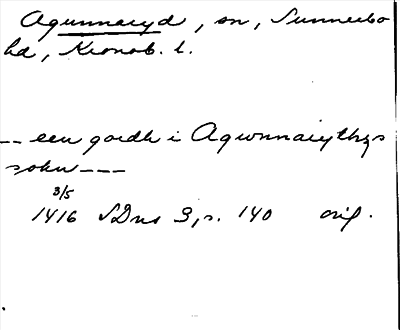 Agunnaryd, sn, Sunnerbo
hd, Kronob. l.
-- een gordh i Agwnnarythz
sokn ---
3/5
1416 SDns 3, s. 140 orig.